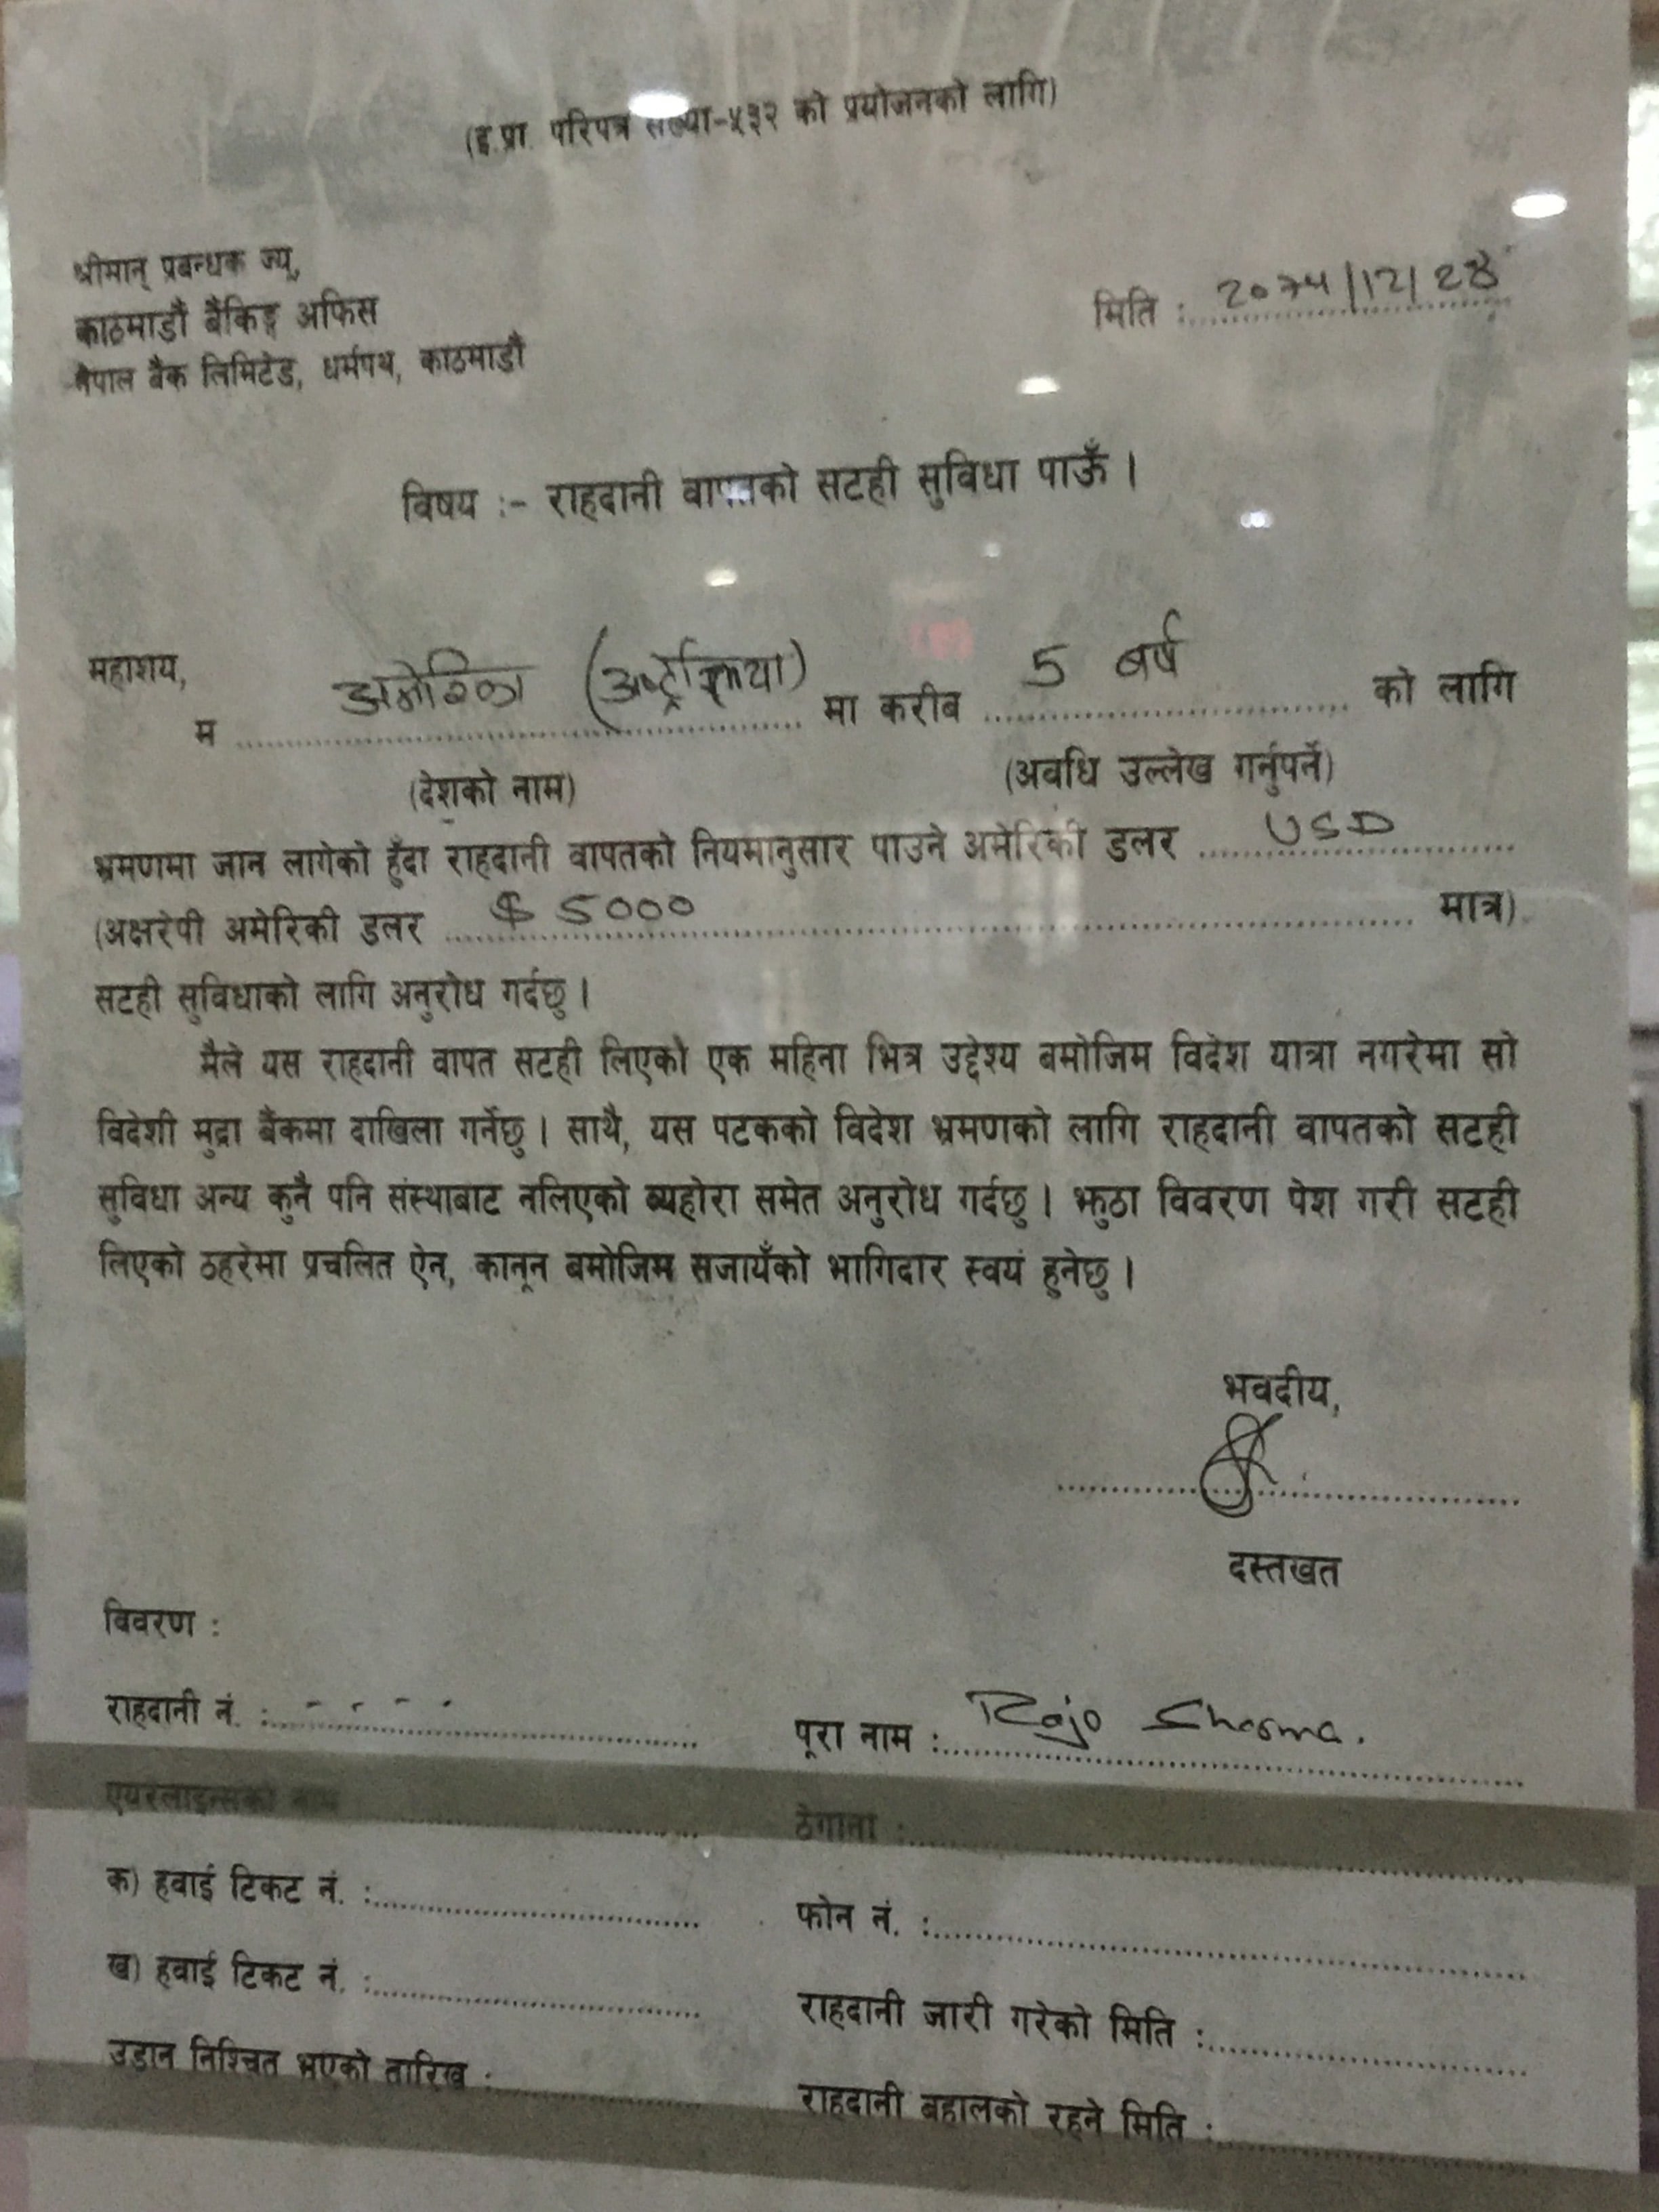 (इ.प्रा. परिपत्र संख्या-५३२ को प्रयोजनको लागि)
श्रीमान् प्रबन्धक ज्यू,
काठमाडौं बैंकिङ्ग अफिस
मिति : 2074/12/28
नेपाल बैंक लिमिटेड, धर्मपथ, काठमाडौं
विषय :- राहदानी वापतको सटही सुविधा पाऊँ ।
महाशय,
म अमेरिका ( ) मा करीब 5 बर्ष को लागि
(देशको नाम) (अवधि उल्लेख गर्नुपर्ने)
भ्रमणमा जान लागेको हुँदा राहदानी वापतको नियमानुसार पाउने अमेरिकी डलर USD
(अक्षरेपी अमेरिकी डलर $ 5000 मात्र)
सटही सुविधाको लागि अनुरोध गर्दछु ।
मैले यस राहदानी वापत सटही लिएको एक महिना भित्र उद्देश्य बमोजिम विदेश यात्रा नगरेमा सो
विदेशी मुद्रा बैंकमा दाखिला गर्नेछु । साथै, यस पटकको विदेश भ्रमणको लागि राहदानी वापतको सटही
सुविधा अन्य कुनै पनि संस्थाबाट नलिएको ब्यहोरा समेत अनुरोध गर्दछु । झुठा विवरण पेश गरी सटही
लिएको ठहरेमा प्रचलित ऐन, कानून बमोजिम सजायँको भागिदार स्वयं हुनेछु ।
भवदीय,
दस्तखत
विवरण :
राहदानी नं. : - - - - पूरा नाम : Rajo Sharma.
एयरलाइन्सको नाम ठेगाना :
क) हवाई टिकट नं. : फोन नं. :
ख) हवाई टिकट नं. : राहदानी जारी गरेको मिति :
उडान निश्चित भएको तारिख : राहदानी बहालको रहने मिति :